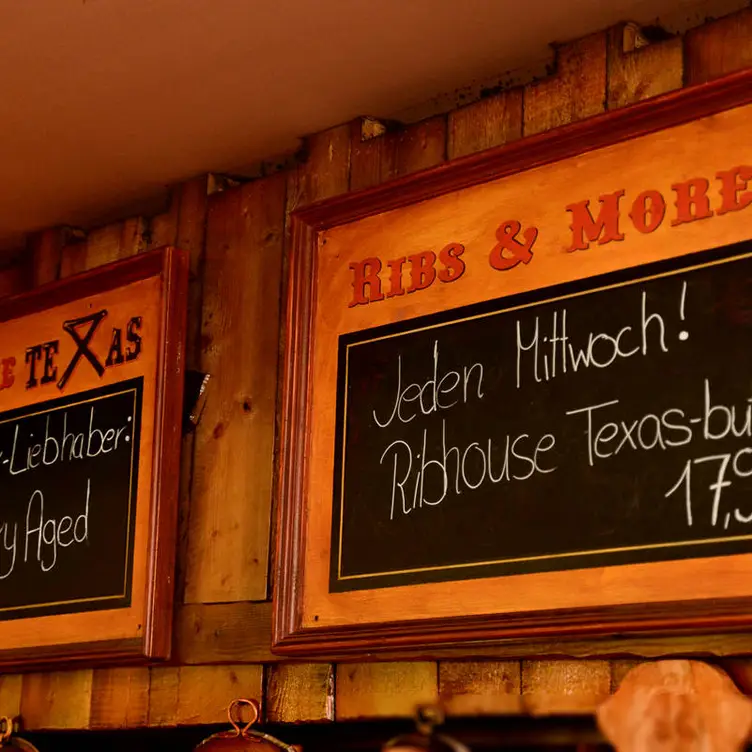 TEXAS
-Liebhaber:
Aged
RIBS & MORE
Jeden Mittwoch!
Ribhouse Texas-bu
17,